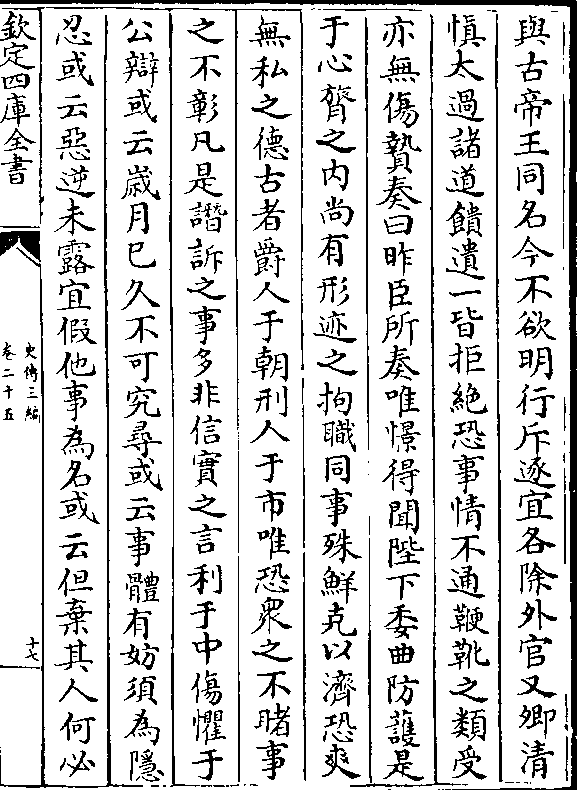 與古帝王同名今不欲明行斥逐宜各除外官又卿清
慎太過諸道饋遺一皆拒絶恐事情不通鞭靴之類受
亦無傷贄奏曰昨臣所奏唯憬得聞陛下委曲防護是
于心膂之内尚有形迹之拘職同事殊鮮克以濟恐爽
無私之德古者爵人于朝刑人于市唯恐衆之不睹事
之不彰凡是譖訴之事多非信實之言利于中傷懼于
公辯或云歲月已久不可究尋或云事體有妨須為隱
忍或云惡逆未露宜假他事為名或云但棄其人何必
欽定四庫全書
史傳三編
卷二十五
十七